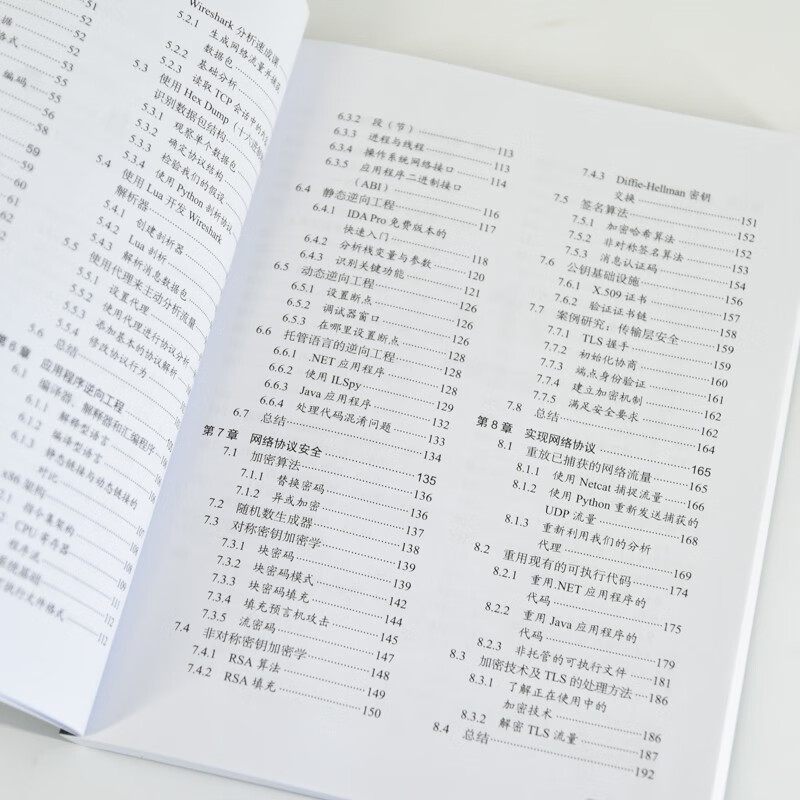 51
52
52
53
55
编码 55
56
58
59
59
60
61
62
62
Wireshark 分析速成课
5.2.1 生成网络流量并捕获
数据包
5.2.2 基础分析
5.2.3 读取 TCP 会话中的
5.3 使用 Hex Dump（十六进制
识别数据包结构
5.3.1 观察单个数据包
5.3.2 确定协议结构
5.3.3 检验我们的假设
5.3.4 使用 Python 剖析协议
5.4 使用 Lua 开发 Wireshark
解析器
5.4.1 创建剖析器
5.4.2 Lua 剖析
5.4.3 解析消息数据包
5.5 使用代理来主动分析流量
5.5.1 设置代理
5.5.2 使用代理进行协议分析
5.5.3 添加基本的协议解析
5.5.4 修改协议行为
5.6 总结
第 6 章 应用程序逆向工程
6.1 编译器、解释器和汇编程序
6.1.1 解释型语言
6.1.2 编译型语言
6.1.3 静态链接与动态链接的
对比
x86 架构
指令集架构
CPU 寄存器
程序流
系统基础
可执行文件格式 112
6.3.2 段（节） 113
6.3.3 进程与线程 113
6.3.4 操作系统网络接口 114
6.3.5 应用程序二进制接口
（ABI） 116
6.4 静态逆向工程 117
6.4.1 IDA Pro 免费版本的
快速入门 118
6.4.2 分析栈变量与参数 120
6.4.3 识别关键功能 121
6.5 动态逆向工程 126
6.5.1 设置断点 126
6.5.2 调试器窗口 126
6.5.3 在哪里设置断点 128
6.6 托管语言的逆向工程 128
6.6.1 .NET 应用程序 128
6.6.2 使用 ILSpy 129
6.6.3 Java 应用程序 132
6.6.4 处理代码混淆问题 133
6.7 总结 134
第 7 章 网络协议安全 135
7.1 加密算法 136
7.1.1 替换密码 136
7.1.2 异或加密 137
7.2 随机数生成器 138
7.3 对称密钥加密学 139
7.3.1 块密码 139
7.3.2 块密码模式 142
7.3.3 块密码填充 144
7.3.4 填充预言机攻击 145
7.3.5 流密码 147
7.4 非对称密钥加密学 148
7.4.1 RSA 算法 149
7.4.2 RSA 填充 150
7.4.3 Diffie-Hellman 密钥
交换 151
7.5 签名算法 152
7.5.1 加密哈希算法 152
7.5.2 非对称签名算法 153
7.5.3 消息认证码 154
7.6 公钥基础设施 156
7.6.1 X.509 证书 157
7.6.2 验证证书链 158
7.7 案例研究：传输层安全 159
7.7.1 TLS 握手 159
7.7.2 初始化协商 160
7.7.3 端点身份验证 161
7.7.4 建立加密机制 162
7.7.5 满足安全要求 162
7.8 总结 164
第 8 章 实现网络协议 165
8.1 重放已捕获的网络流量 165
8.1.1 使用 Netcat 捕捉流量 166
8.1.2 使用 Python 重新发送捕获的
UDP 流量 168
8.1.3 重新利用我们的分析
代理 169
8.2 重用现有的可执行代码 174
8.2.1 重用.NET 应用程序的
代码 175
8.2.2 重用 Java 应用程序的
代码 179
8.2.3 非托管的可执行文件 181
8.3 加密技术及 TLS 的处理方法 186
8.3.1 了解正在使用中的
加密技术 186
8.3.2 解密 TLS 流量 187
8.4 总结 192